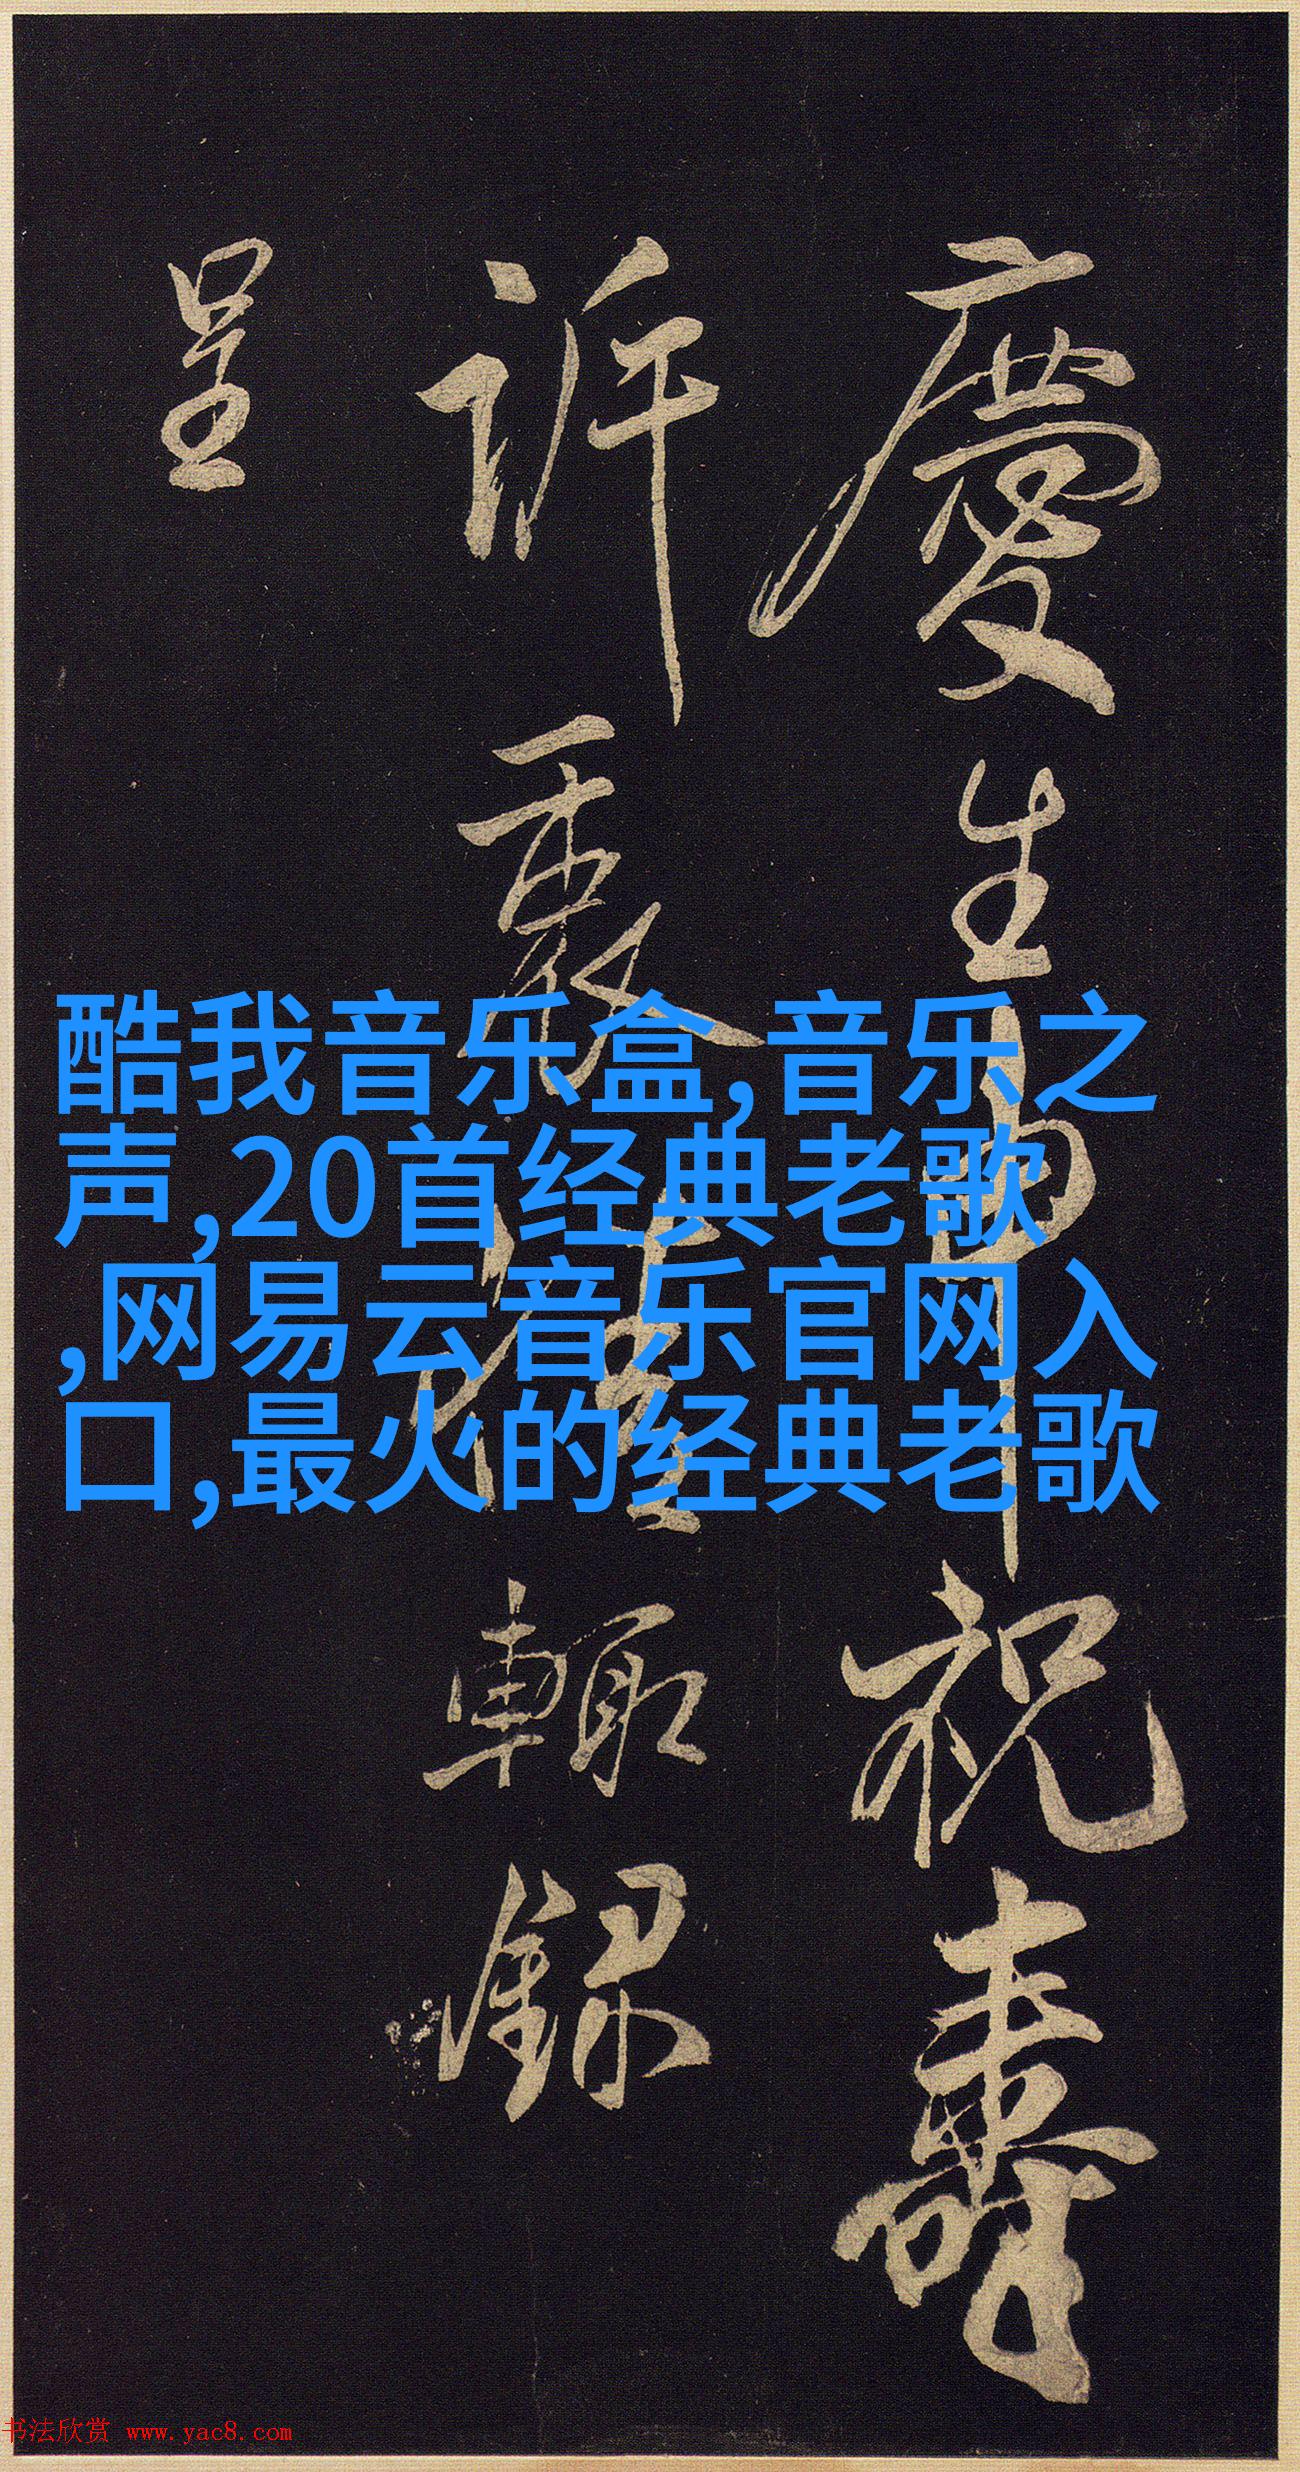 慶生申祝壽
輒錄
呈
酷我音乐盒,音乐之
声,20首经典老歌
,网易云音乐官网入
口,最火的经典老歌
书法欣赏 www.yac8.com